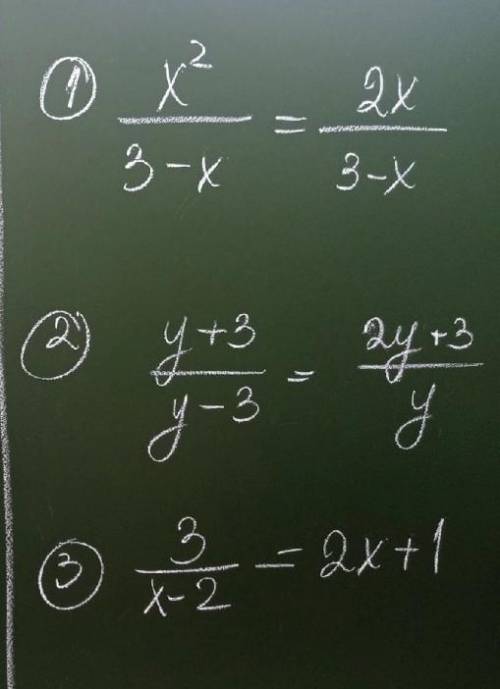 ① x²/(3-x) = 2x/(3-x)
② (y+3)/(y-3) = (2y+3)/y
③ 3/(x-2) = 2x+1